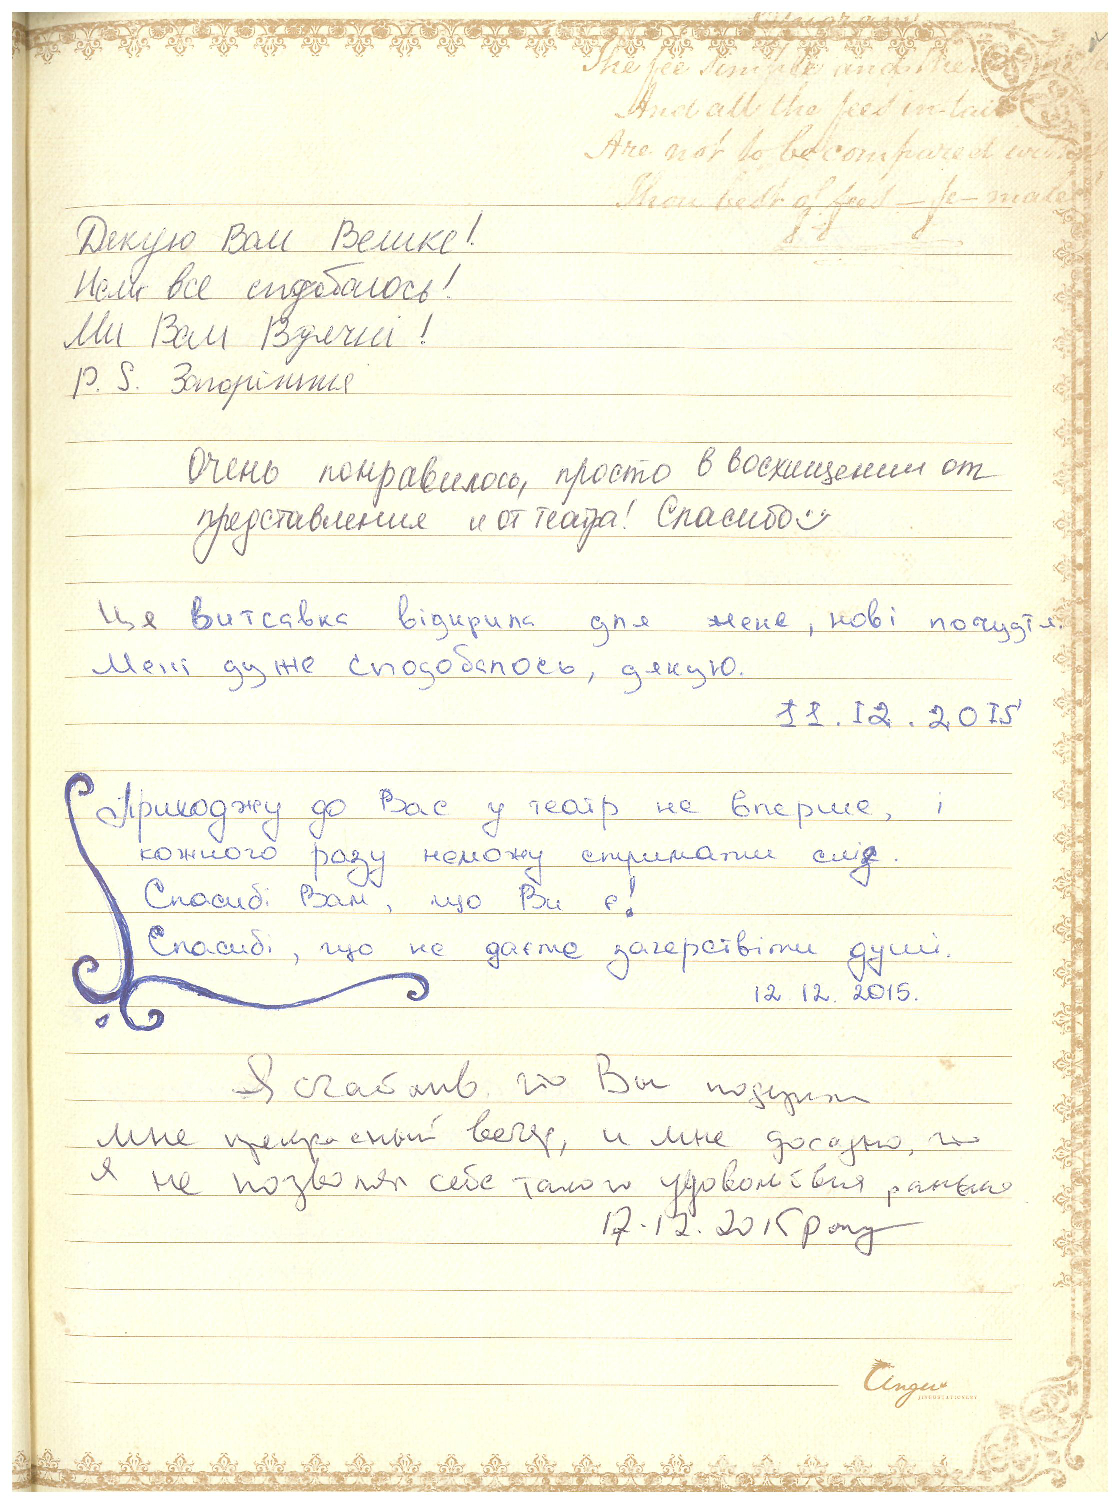 The fee simple and the
And all the fees in-tail
Are not to be compared with
Thou best of fees — fe-males!
Дякую Вам Велике!
Нем все сподобалось!
Ми Вам Вдячні!
P. S. Запоріжжя
Очень понравилось, просто в восхищении от
представления и от театра! Спасибо
Ця витсавка відкрила для мене, нові почудтя.
Мені дуже сподобалось, дякую.
11.12.2015
Приходжу до Вас у театр не вперше, і
кожного разу неможу стримати сліз.
Спасибі Вам, що Ви є!
Спасибі, що не даєте зачерствіти душі.
12.12.2015.
Я счастлив что Вы подарили
мне прекрасный вечер, и мне досадно, что
я не позволял себе такого удовольствия раньше
17.12.2015 року